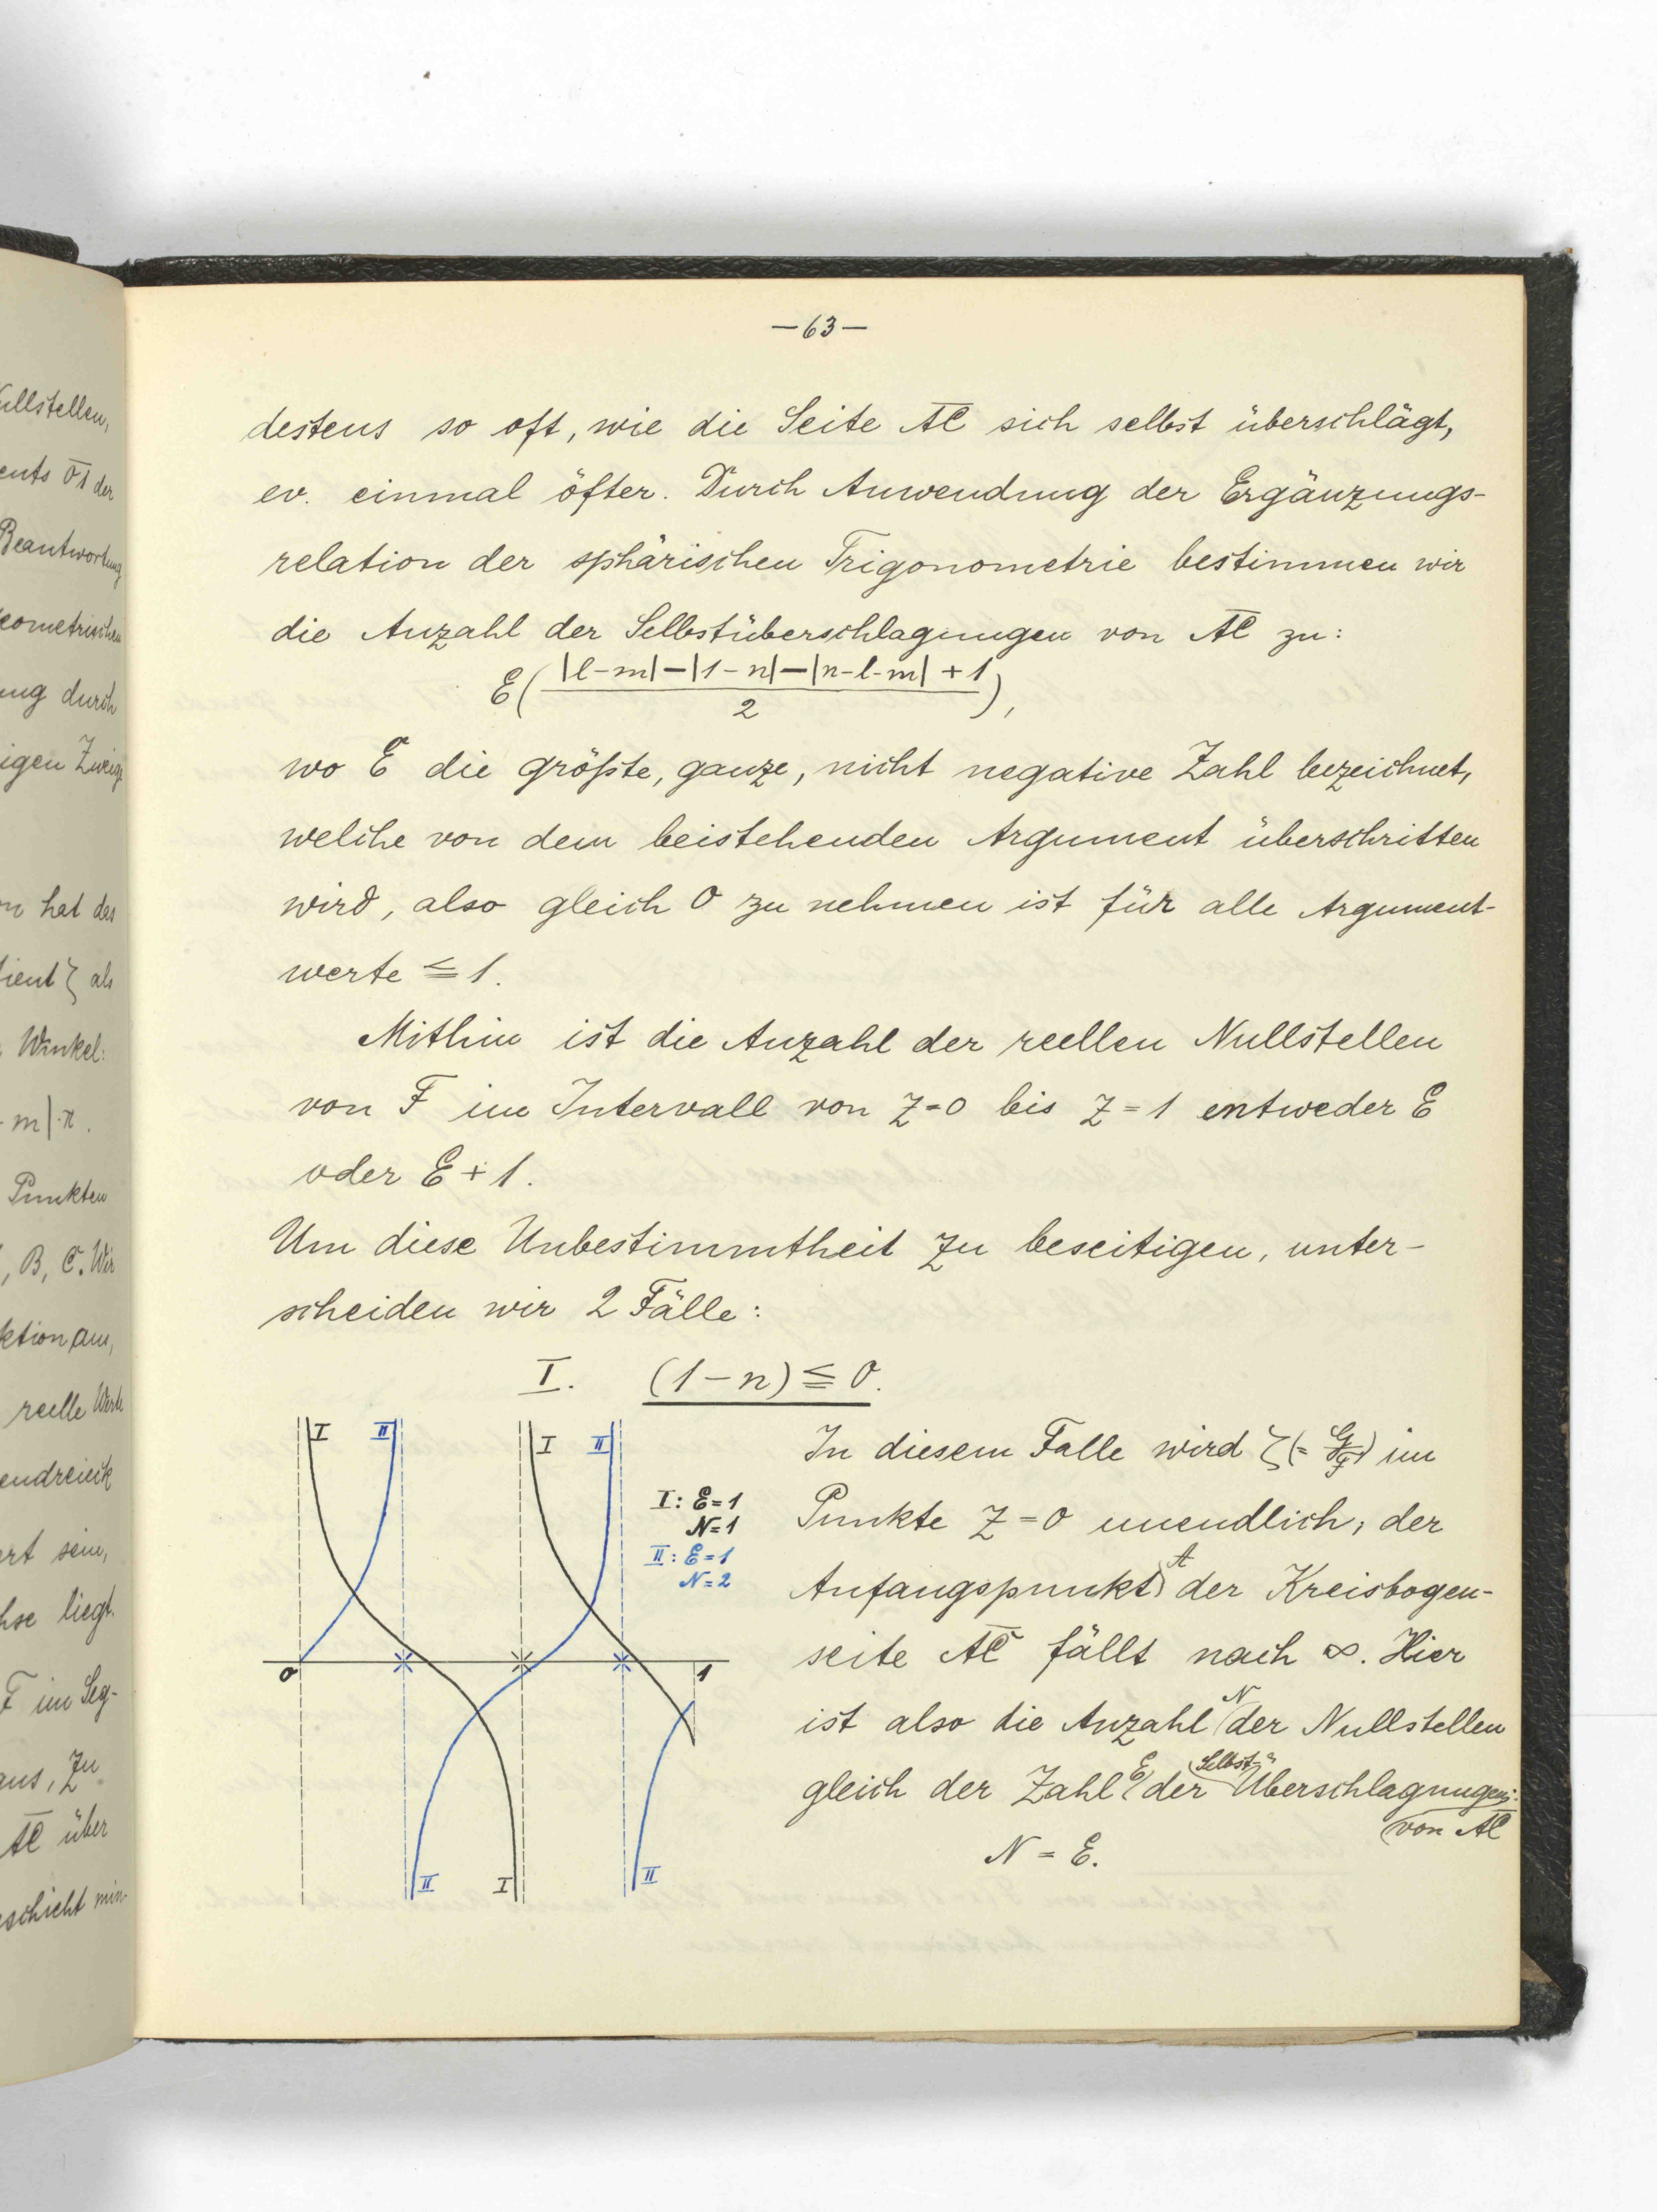 ullstellen,
ents 01 der
Beantwortung
eometrischen
ung durch
igen Zweige
n hat das
tient ζ als
Winkel:
- m|·π.
Punkten
, B, C. Wir
ktion am,
reelle Werte
endreieck
ert sein,
hse liegt.
F im Seg-
aus, zu
AC über
eschieht min-
—63—
destens so oft, wie die Seite AC sich selbst überschlägt,
ev. einmal öfter. Durch Anwendung der Ergänzungs-
relation der sphärischen Trigonometrie bestimmen wir
die Anzahl der Selbstüberschlagungen von AC zu:
E(|l-m|-|1-n|-|n-l-m|+1 / 2),
wo E die größte, ganze, nicht negative Zahl bezeichnet,
welche von dem beistehenden Argument überschritten
wird, also gleich 0 zu nehmen ist für alle Argument-
werte ≦ 1.
Mithin ist die Anzahl der reellen Nullstellen
von F im Intervall von z=0 bis z=1 entweder E
oder E+1.
Um diese Unbestimmtheit zu beseitigen, unter-
scheiden wir 2 Fälle:
I. (1-n) ≦ 0.
I II I II
I: E=1
N=1
II: E=1
N=2
0 1
II I II
In diesem Falle wird ζ(= G/F) im
Punkte z=0 unendlich; der
Anfangspunkt A der Kreisbogen-
seite AC fällt nach ∞. Hier
ist also die Anzahl N der Nullstellen
gleich der Zahl E der Selbst-Überschlagungen:
von AC
N = E.